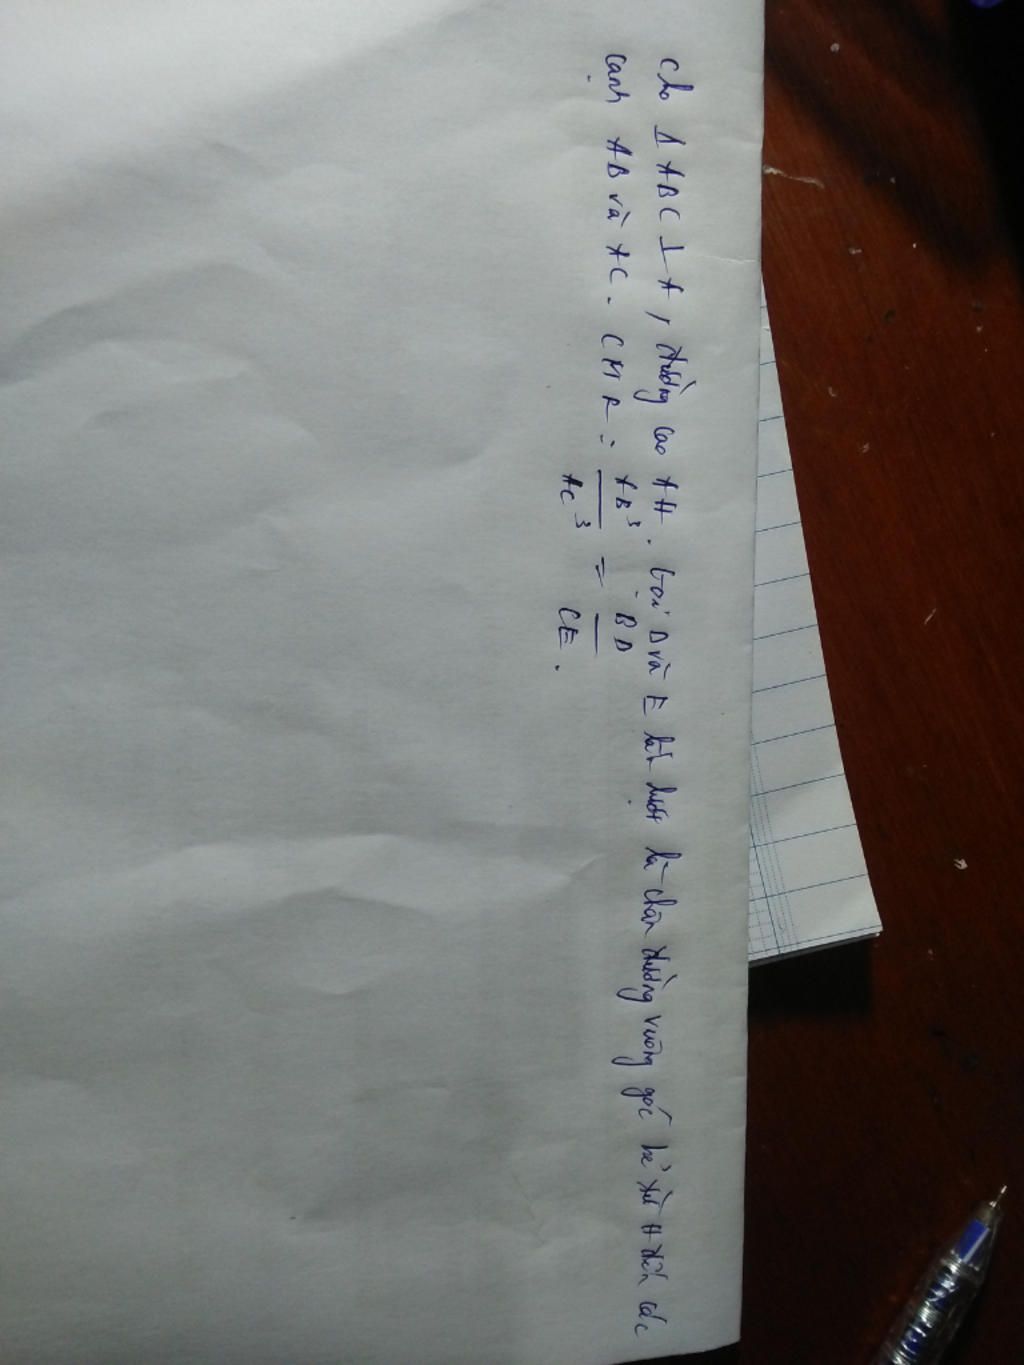 Cho Δ ABC ⊥ A, đường cao AH. Gọi D và E lần lượt là chân đường vuông góc kẻ từ H đến các
cạnh AB và AC. CMR: AB³/AC³ = BD/CE.